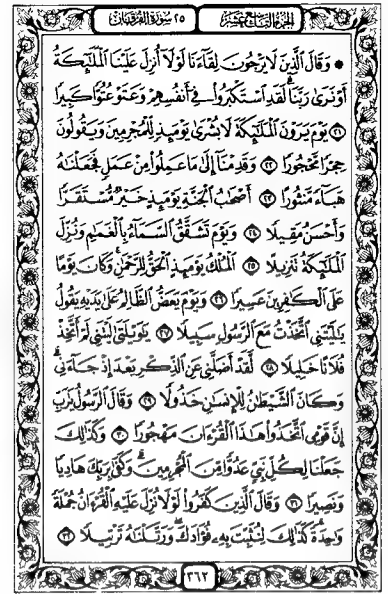 الجزء التاسع عشر ٢٥ سورة الفرقان
۞ وَقَالَ الَّذِينَ لَا يَرْجُونَ لِقَاءَنَا لَوْلَا أُنزِلَ عَلَيْنَا الْمَلَٰئِكَةُ
أَوْ نَرَىٰ رَبَّنَا لَقَدِ اسْتَكْبَرُوا فِي أَنفُسِهِمْ وَعَتَوْ عُتُوًّا كَبِيرًا
٢١ يَوْمَ يَرَوْنَ الْمَلَٰئِكَةَ لَا بُشْرَىٰ يَوْمَئِذٍ لِّلْمُجْرِمِينَ وَيَقُولُونَ
حِجْرًا مَّحْجُورًا ٢٢ وَقَدِمْنَا إِلَىٰ مَا عَمِلُوا مِنْ عَمَلٍ فَجَعَلْنَٰهُ
هَبَاءً مَّنثُورًا ٢٣ أَصْحَٰبُ الْجَنَّةِ يَوْمَئِذٍ خَيْرٌ مُّسْتَقَرًّا
وَأَحْسَنُ مَقِيلًا ٢٤ وَيَوْمَ تَشَقَّقُ السَّمَاءُ بِالْغَمَٰمِ وَنُزِّلَ
الْمَلَٰئِكَةُ تَنزِيلًا ٢٥ الْمُلْكُ يَوْمَئِذٍ الْحَقُّ لِلرَّحْمَٰنِ وَكَانَ يَوْمًا
عَلَى الْكَٰفِرِينَ عَسِيرًا ٢٦ وَيَوْمَ يَعَضُّ الظَّالِمُ عَلَىٰ يَدَيْهِ يَقُولُ
يَٰلَيْتَنِي اتَّخَذْتُ مَعَ الرَّسُولِ سَبِيلًا ٢٧ يَٰوَيْلَتَىٰ لَيْتَنِي لَمْ أَتَّخِذْ
فُلَانًا خَلِيلًا ٢٨ لَّقَدْ أَضَلَّنِي عَنِ الذِّكْرِ بَعْدَ إِذْ جَاءَنِي ۗ
وَكَانَ الشَّيْطَٰنُ لِلْإِنسَٰنِ خَذُولًا ٢٩ وَقَالَ الرَّسُولُ يَٰرَبِّ
إِنَّ قَوْمِي اتَّخَذُوا هَٰذَا الْقُرْءَانَ مَهْجُورًا ٣٠ وَكَذَٰلِكَ
جَعَلْنَا لِكُلِّ نَبِيٍّ عَدُوًّا مِّنَ الْمُجْرِمِينَ ۗ وَكَفَىٰ بِرَبِّكَ هَادِيًا
وَنَصِيرًا ٣١ وَقَالَ الَّذِينَ كَفَرُوا لَوْلَا نُزِّلَ عَلَيْهِ الْقُرْءَانُ جُمْلَةً
وَٰحِدَةً ۚ كَذَٰلِكَ لِنُثَبِّتَ بِهِ فُؤَادَكَ ۖ وَرَتَّلْنَٰهُ تَرْتِيلًا ٣٢
٣٦٢